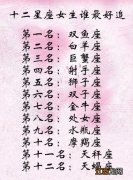 十二星座女生谁最好追
第一名：双鱼座
第二名：白羊座
第三名：巨蟹座
第四名：射手座
第五名：狮子座
第六名：双子座
第七名：金牛座
第八名：处女座
第九名：水瓶座
第十名：摩羯座
第十一名：天秤座
第十二名：天蝎座